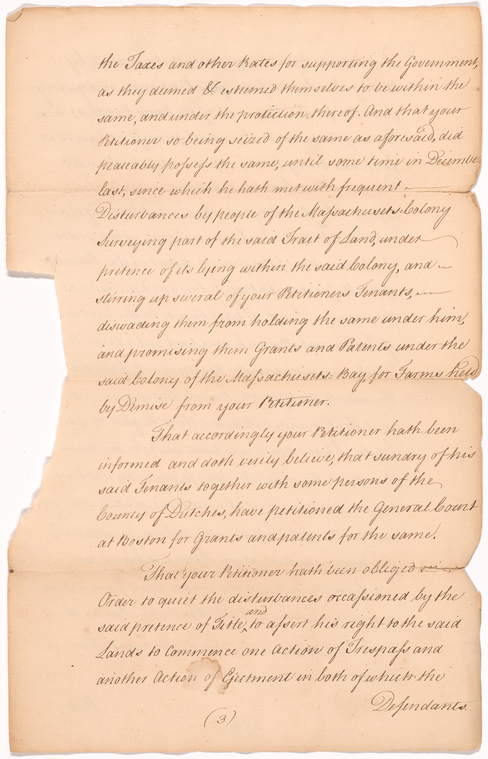 the Taxes and other Rates for supporting the Government,
as they deemed & esteemed themselves to be within the
same, and under the protection thereof. And that your
Petitioner so being seized of the same as aforesaid, did
peaceably possess the same, until some time in December
last, since which he hath met with frequent
Disturbances by people of the Massachusets Colony
Surveying part of the said Tract of Land, under
pretence of its lying within the said Colony, and
stirring up several of your Petitioners Tenants,
diswading them from holding the same under him,
and promising them Grants and Patents under the
said Colony of the Massachusets Bay, for Farms held
by Demise from your Petitioner.
That accordingly your Petitioner hath been
informed and doth verily believe, that sundry of his
said Tenants together with some persons of the
County of Dutches, have petitioned the General Court
at Boston for Grants and patents for the same.
That your Petitioner hath been obliged in
Order to quiet the disturbances occassioned by the
said pretence of Title, and to assert his right to the said
Lands to Commence one Action of Trespass and
another Action of Ejectment in both of which the
Defendants.
(3)